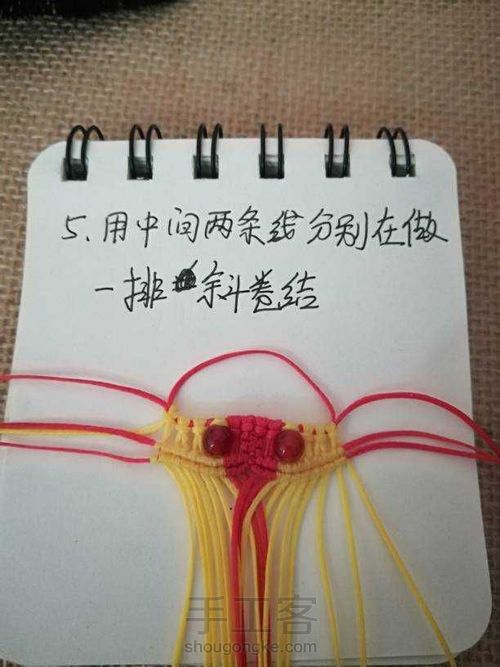 5、用中间两条线分别在做
一排斜卷结
手工客
shougongke.com